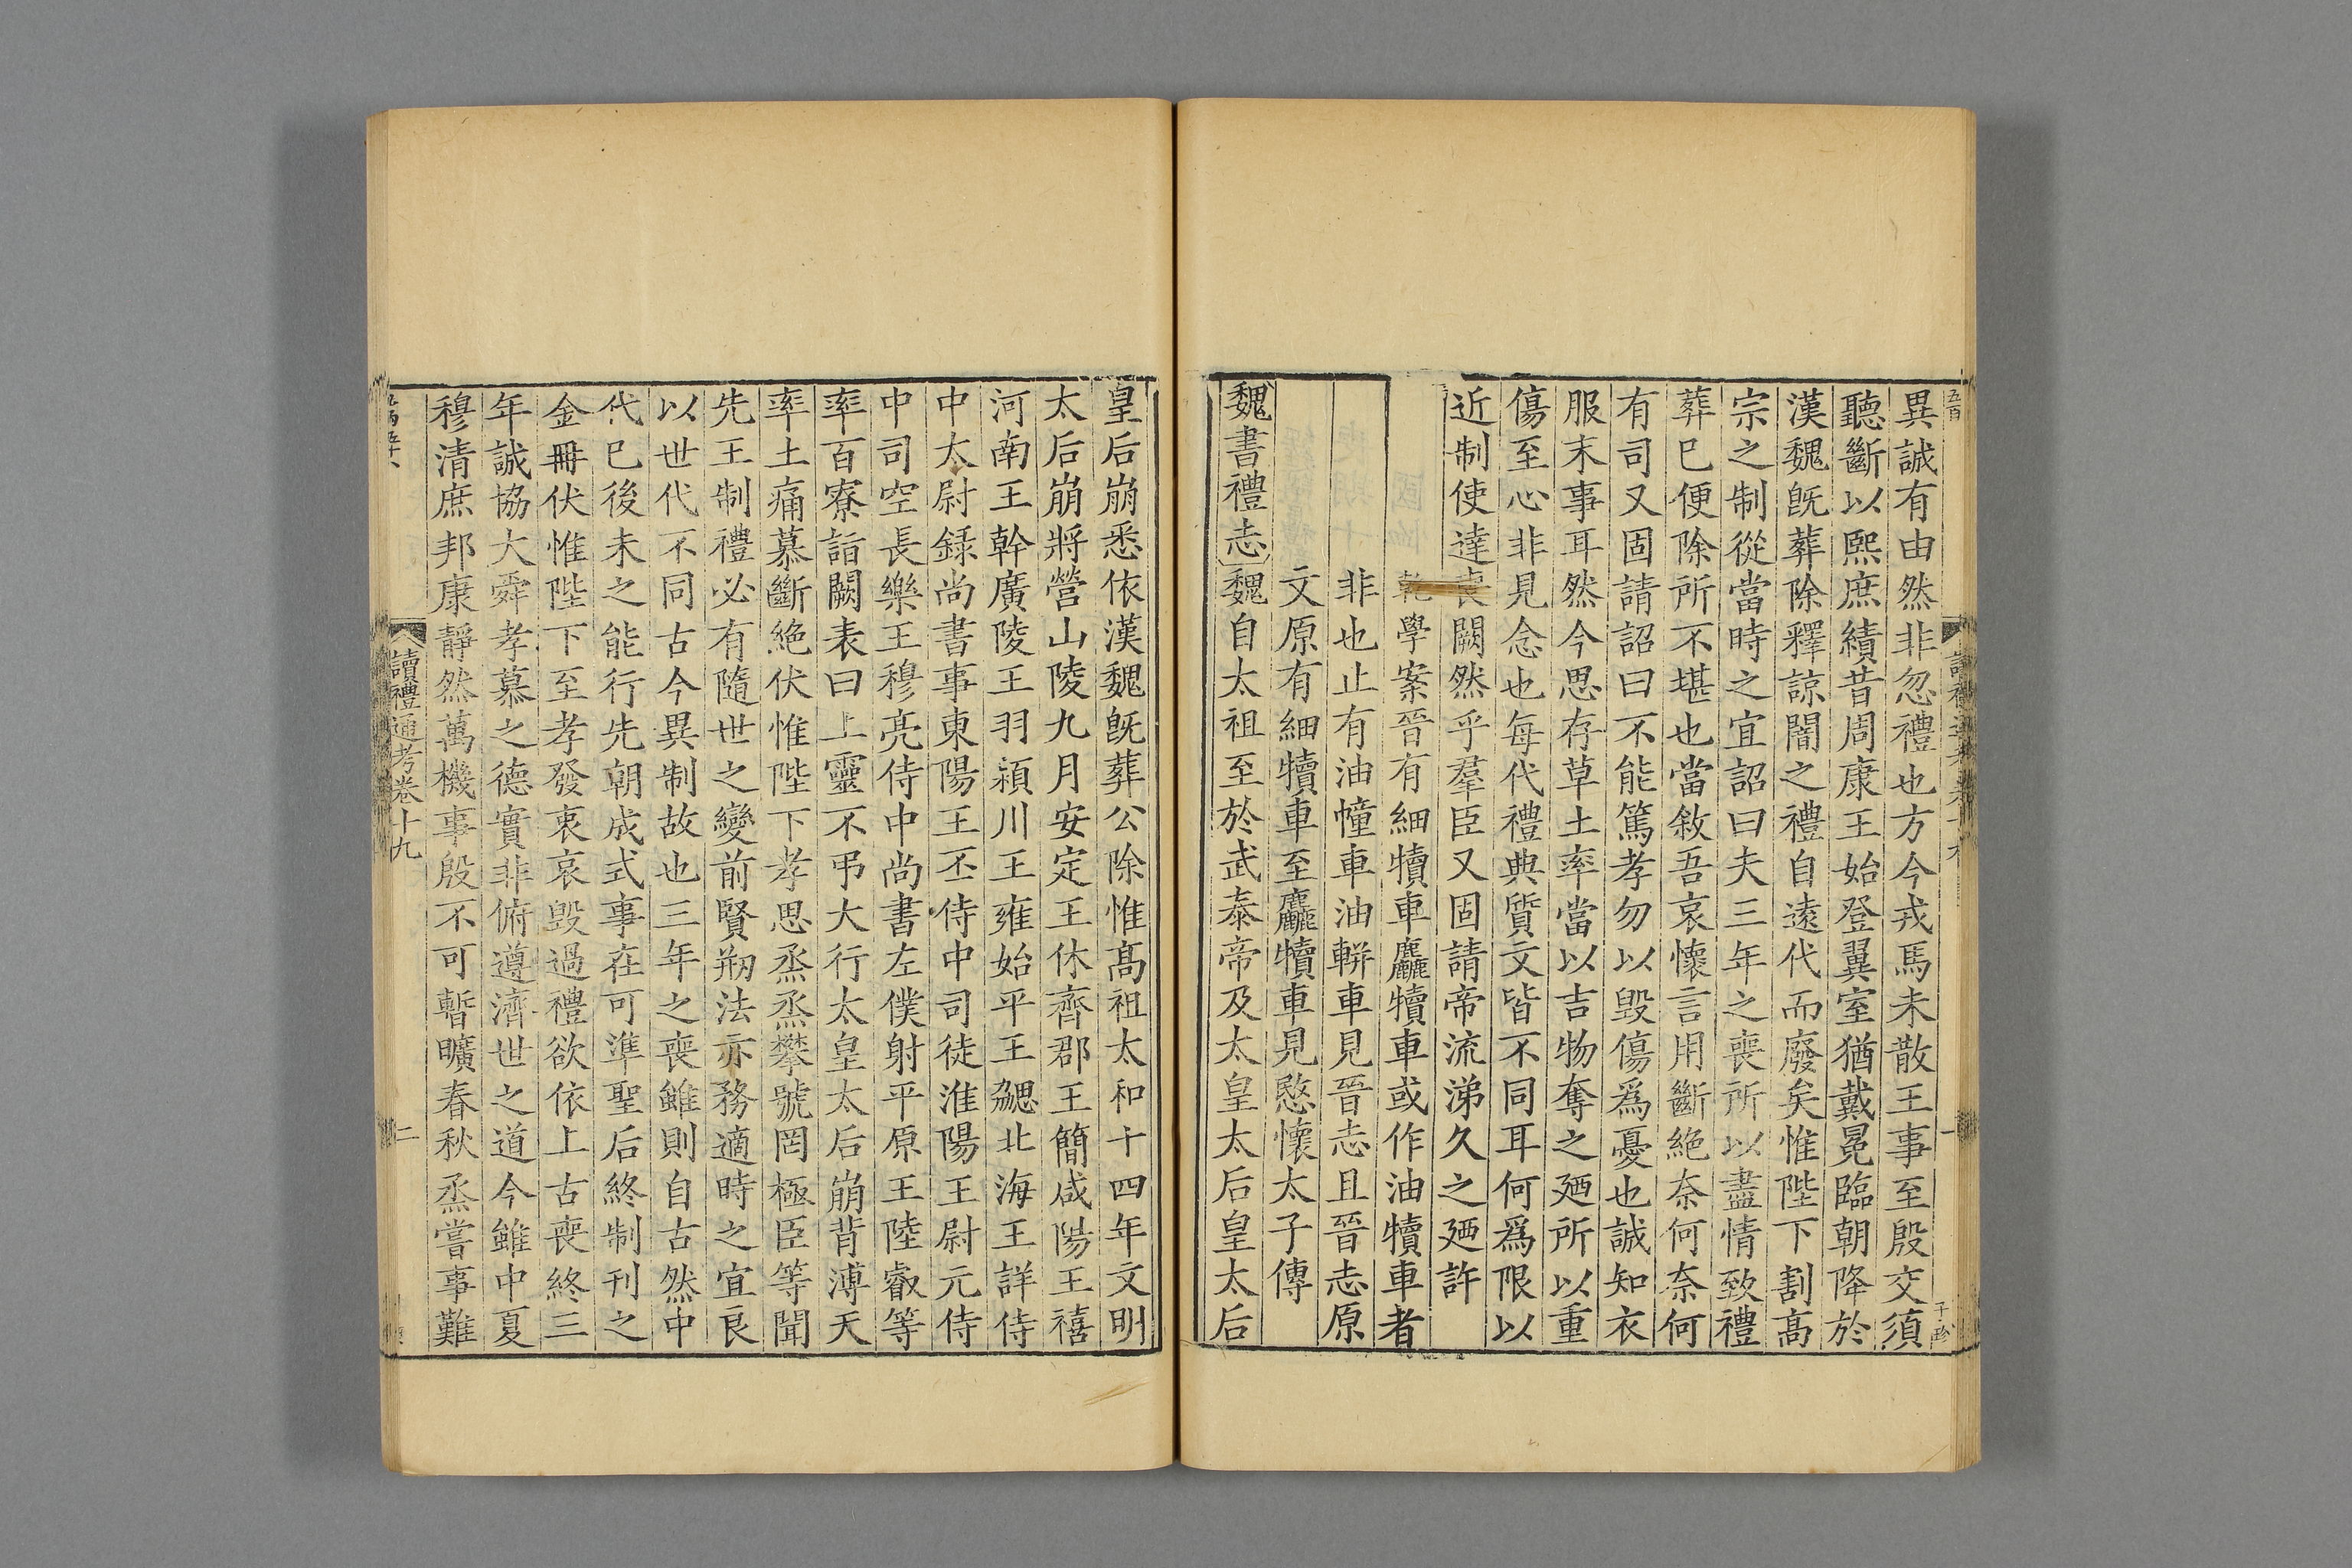 異誠有由然非忽禮也方今戎馬未散王事至殷交須
聽斷以熙庶績昔周康王始登翼室猶戴冕臨朝降於
漢魏旣葬除釋諒闇之禮自遠代而廢矣惟陛下割高
宗之制從當時之宜詔曰夫三年之喪所以盡情致禮
葬已便除所不堪也當敘吾哀懷言用斷絶奈何奈何
有司又固請詔曰不能篤孝勿以毁傷爲憂也誠知衣
服末事耳然今思存草土率當以吉物奪之廼所以重
傷至心非見念也每代禮典質文皆不同耳何爲限以
近制使達喪闕然乎羣臣又固請帝流涕久之廼許
乾學案晉有細犢車麤犢車或作油犢車者
非也止有油幢車油軿車見晉志且晉志原
文原有細犢車至麤犢車見愍懷太子傳
魏書禮志魏自太祖至於武泰帝及太皇太后皇太后
皇后崩悉依漢魏旣葬公除惟高祖太和十四年文明
太后崩將營山陵九月安定王休齊郡王簡咸陽王禧
河南王幹廣陵王羽潁川王雍始平王勰北海王詳侍
中太尉錄尚書事東陽王丕侍中司徒淮陽王尉元侍
中司空長樂王穆亮侍中尚書左僕射平原王陸叡等
率百寮詣闕表曰上靈不弔大行太皇太后崩背溥天
率土痛慕斷絶伏惟陛下孝思烝烝攀號罔極臣等聞
先王制禮必有隨世之變前賢剏法亦務適時之宜良
以世代不同古今異制故也三年之喪雖則自古然中
代已後未之能行先朝成式事在可準聖后終制刊之
金冊伏惟陛下至孝發衷哀毁過禮欲依上古喪終三
年誠協大舜孝慕之德實非俯遵濟世之道今雖中夏
穆清庶邦康靜然萬機事殷不可暫曠春秋烝嘗事難
讀禮通考卷十九
二